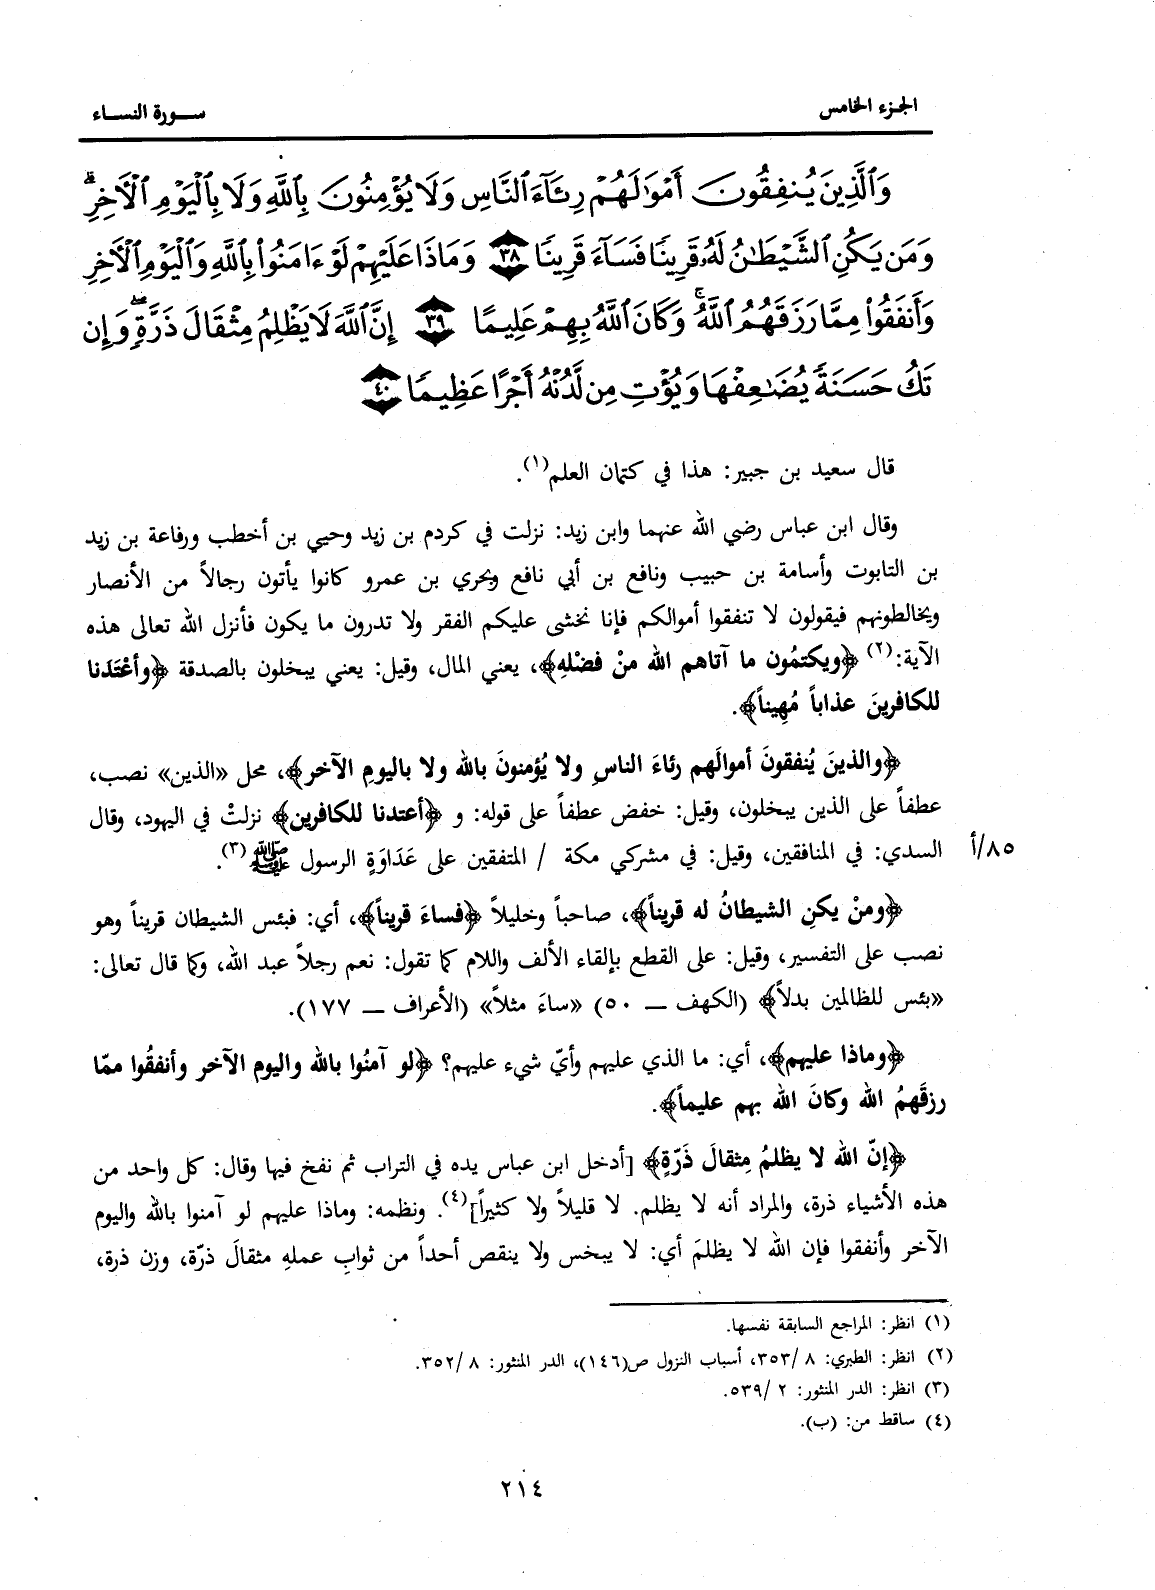 الجزء الخامس
سورة النساء
وَٱلَّذِينَ يُنفِقُونَ أَمْوَٰلَهُمْ رِئَآءَ ٱلنَّاسِ وَلَا يُؤْمِنُونَ بِٱللَّهِ وَلَا بِٱلْيَوْمِ ٱلْأَخِرِۗ
وَمَن يَكُنِ ٱلشَّيْطَـٰنُ لَهُۥ قَرِينًا فَسَآءَ قَرِينًا ٣٨ وَمَاذَا عَلَيْهِمْ لَوْ ءَامَنُوا۟ بِٱللَّهِ وَٱلْيَوْمِ ٱلْأَخِرِ
وَأَنفَقُوا۟ مِمَّا رَزَقَهُمُ ٱللَّهُۚ وَكَانَ ٱللَّهُ بِهِمْ عَلِيمًا ٣٩ إِنَّ ٱللَّهَ لَا يَظْلِمُ مِثْقَالَ ذَرَّةٍۖ وَإِن
تَكُ حَسَنَةً يُضَـٰعِفْهَا وَيُؤْتِ مِن لَّدُنْهُ أَجْرًا عَظِيمًا ٤٠
قال سعيد بن جبير: هذا في كتمان العلم(١).
وقال ابن عباس رضي الله عنهما وابن زيد: نزلت في كردم بن زيد وحيي بن أخطب ورفاعة بن زيد
بن التابوت وأسامة بن حبيب ونافع بن أبي نافع وبحري بن عمرو كانوا يأتون رجالاً من الأنصار
ويخالطونهم فيقولون لا تنفقوا أموالكم فإنا نخشى عليكم الفقر ولا تدرون ما يكون فأنزل الله تعالى هذه
الآية:(٢) ﴿ويكتمُون ما آتاهم الله منْ فضْلهِ﴾، يعني المال، وقيل: يعني يبخلون بالصدقة ﴿وأعْتَدَنا
للكافرينَ عذاباً مُهِيناً﴾.
﴿والذينَ يُنفقونَ أموالَهم رئاءَ الناسِ ولا يُؤمنونَ بالله ولا باليومِ الآخر﴾، محل «الذين» نصب،
عطفاً على الذين يبخلون، وقيل: خفض عطفاً على قوله: و ﴿أعتدنا للكافرين﴾ نزلتْ في اليهود، وقال
السدي: في المنافقين، وقيل: في مشركي مكة / المتفقين على عَدَاوَةِ الرسول ﷺ(٣).
٨٥/أ
﴿ومنْ يكنِ الشيطانُ له قريناً﴾، صاحباً وخليلاً ﴿فساءَ قريناً﴾، أي: فبئس الشيطان قريناً وهو
نصب على التفسير، وقيل: على القطع بإلقاء الألف واللام كما تقول: نعم رجلاً عبد الله، وكما قال تعالى:
«بئس للظالمين بدلاً﴾ (الكهف ـ ٥٠) «ساءَ مثلاً» (الأعراف ـ ١٧٧).
﴿وماذا عليهم﴾، أي: ما الذي عليهم وأيّ شيء عليهم؟ ﴿لو آمنُوا بالله واليوم الآخر وأنفقُوا ممّا
رزقَهمُ الله وكانَ الله بهم عليماً﴾.
﴿إنّ الله لا يظلمُ مِثقالَ ذَرّةٍ﴾ [أدخل ابن عباس يده في التراب ثم نفخ فيها وقال: كل واحد من
هذه الأشياء ذرة، والمراد أنه لا يظلم. لا قليلاً ولا كثيراً](٤). ونظمه: وماذا عليهم لو آمنوا بالله واليوم
الآخر وأنفقوا فإن الله لا يظلمَ أي: لا يبخس ولا ينقص أحداً من ثوابِ عملهِ مثقالَ ذرّة، وزن ذرة،
(١) انظر: المراجع السابقة نفسها.
(٢) انظر: الطبري: ٨ /٣٥٣، أسباب النزول ص(١٤٦)، الدر المنثور: ٨ /٣٥٢.
(٣) انظر: الدر المنثور: ٢ /٥٣٩.
(٤) ساقط من: (ب).
٢١٤